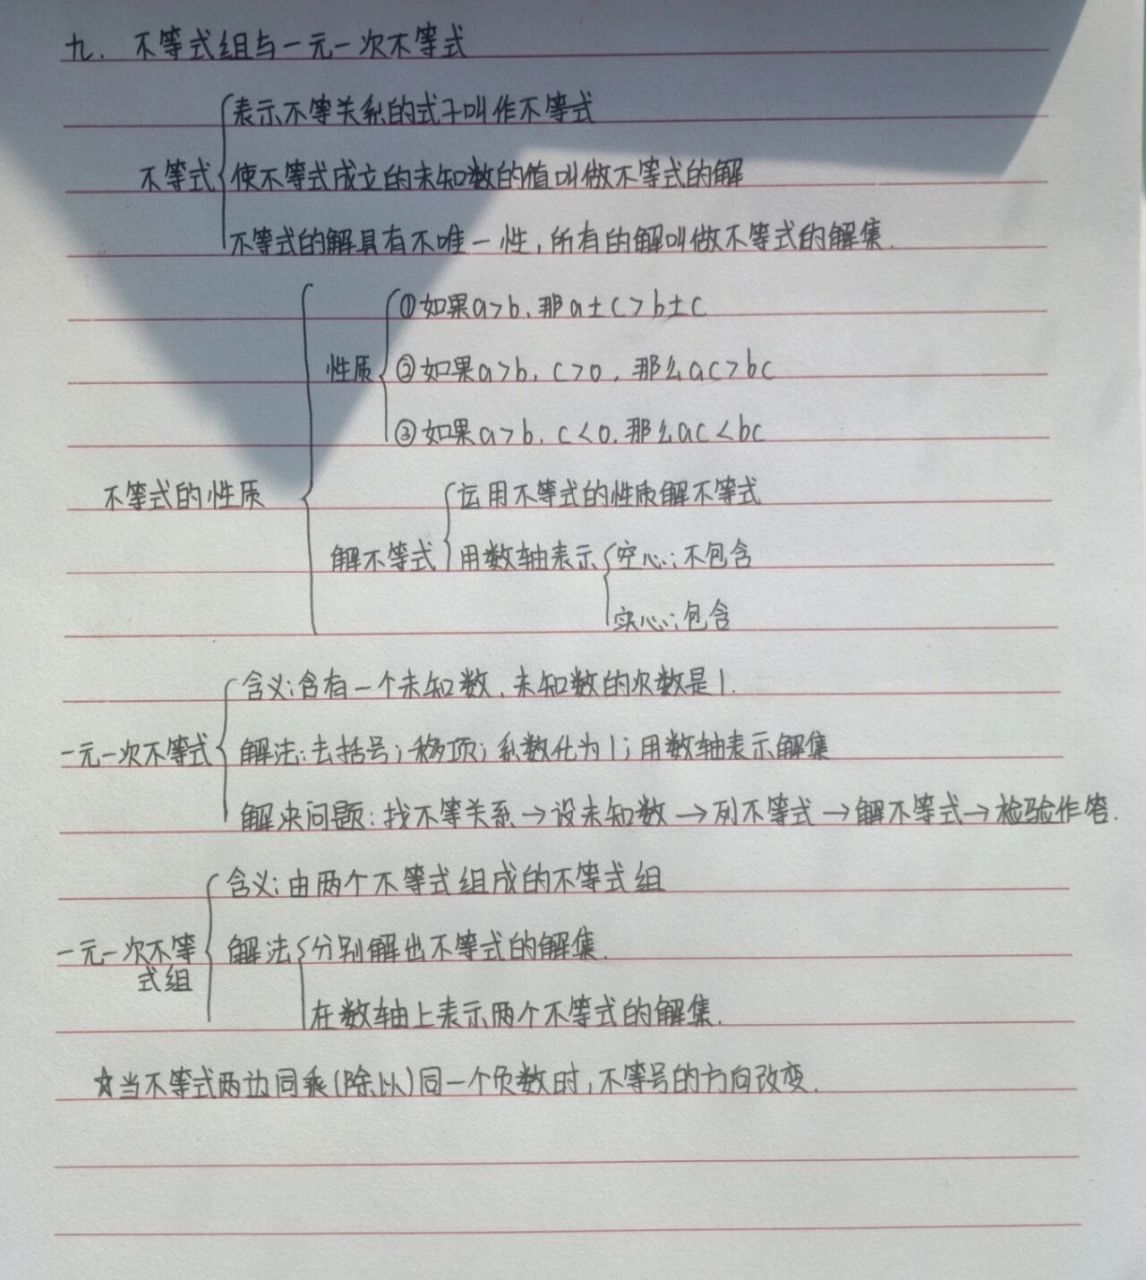 九. 不等式组与一元一次不等式
表示不等关系的式子叫作不等式
不等式 使不等式成立的未知数的值叫做不等式的解
不等式的解具有不唯一性,所有的解叫做不等式的解集.
①如果a>b,那a±c>b±c
性质 ②如果a>b,c>0,那么ac>bc
③如果a>b,c<0,那么ac<bc
不等式的性质 运用不等式的性质解不等式
解不等式 用数轴表示 空心:不包含
实心:包含
含义:含有一个未知数,未知数的次数是1.
一元一次不等式 解法:去括号;移项;系数化为1;用数轴表示解集
解决问题:找不等关系→设未知数→列不等式→解不等式→检验作答.
含义:由两个不等式组成的不等式组
一元一次不等 解法 分别解出不等式的解集.
式组
在数轴上表示两个不等式的解集.
☆当不等式两边同乘(除以)同一个负数时,不等号的方向改变.